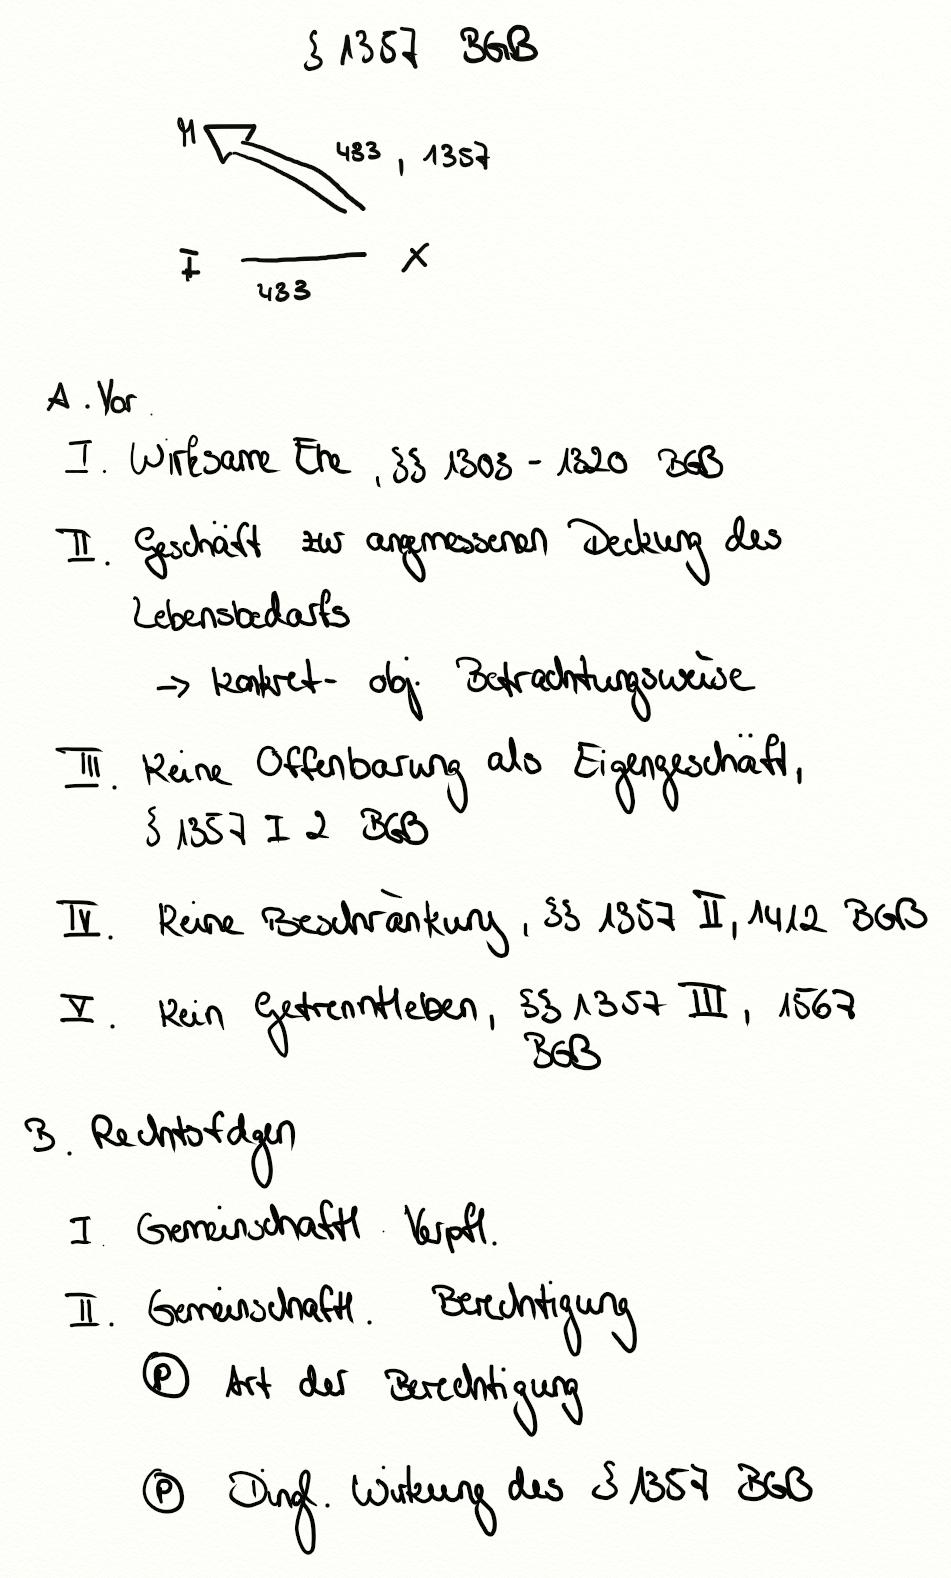 § 1357 BGB
M
433, 1357
F X
433
A. Vor.
I. Wirksame Ehe, §§ 1303 - 1320 BGB
II. Geschäft zur angemessenen Deckung des
Lebensbedarfs
→ konkret- obj. Betrachtungsweise
III. Keine Offenbarung als Eigengeschäft,
§ 1357 I 2 BGB
IV. Keine Beschränkung, §§ 1357 II, 1412 BGB
V. Kein Getrenntleben, §§ 1357 III, 1567
BGB
B. Rechtsfolgen
I. Gemeinschaftl. Verpfl.
II. Gemeinschaftl. Berechtigung
(P) Art der Berechtigung
(P) Dingl. Wirkung des § 1357 BGB